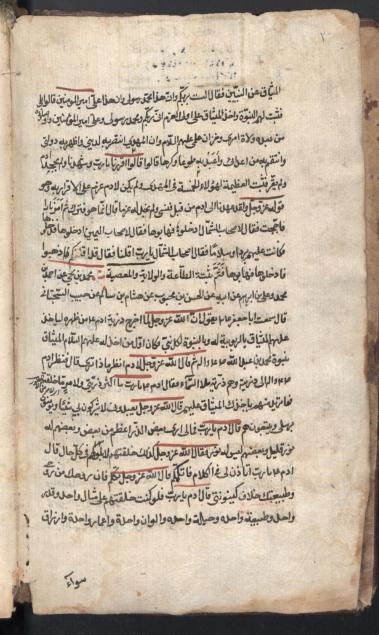 الميثاق على النبيين فقال الست بربكم وان هذا محمد رسولي وان هذا علي امير المؤمنين قالوا بلى
فثبتت لهم النبوة واخذ الميثاق على اولي العزم انني ربكم ومحمد رسولي وعلي امير المؤمنين واوصياؤه
من بعده ولاة امري وخزان علمي وان المهدي انتصر به لديني واظهر به دولتي
وانتقم به من اعدائي واعبد به طوعا وكرها قالوا اقررنا يا رب وشهدنا ولم يجحد آدم
ولم يقر فثبتت العزيمة لهؤلاء الخمسة في المهدي ولم يكن لادم عزم على الاقرار به وهو
قوله عز وجل ولقد عهدنا الى ادم من قبل فنسي ولم نجد له عزما قال انما هو فترك ثم امر نارا
فاججت فقال لاصحاب الشمال ادخلوها فهابوها فقال لاصحاب اليمين ادخلوها فدخلوها
فكانت عليهم بردا وسلاما فقال اصحاب الشمال يا رب اقلنا فقال قد اقلتكم اذهبوا
فادخلوها فهابوها فثم ثبتت الطاعة والولاية والمعصية محمد بن يحيى عن احمد بن
محمد وعلي بن ابراهيم عن ابيه عن الحسن بن محبوب عن هشام بن سالم عن حبيب السجستاني
قال سمعت ابا جعفر يقول ان الله عز وجل لما اخرج ذرية ادم من ظهره لياخذ
عليهم الميثاق بالربوبية له وبالنبوة لكل نبي فكان اول من اخذ له عليهم الميثاق
بنبوة محمد بن عبد الله ثم قال الله عز وجل لادم انظر ماذا ترى قال فنظر ادم
الى ذريته وهم ذر قد ملؤا السماء فقال ادم يا رب ما اكثر ذريتي ولامر ما خلقتهم
فما تريد منهم باخذك الميثاق عليهم قال الله عز وجل يعبدونني لا يشركون بي شيئا ويؤمنون
برسلي ويتبعونهم قال ادم يا رب فما لي ارى بعض الذر اعظم من بعض وبعضهم له
نور قليل وبعضهم ليس له نور فقال الله عز وجل كذلك خلقتهم لابلوهم في كل حال قال
ادم يا رب اتاذن لي في الكلام فاتكلم قال الله عز وجل تكلم فان روحك من روحي
وطبيعتك خلاف كينونتي قال ادم يا رب فلو كنت خلقتهم على مثال واحد وقدر
واحد وطبيعة واحدة وجبلة واحدة والوان واحدة واعمار واحدة وارزاق
سواء